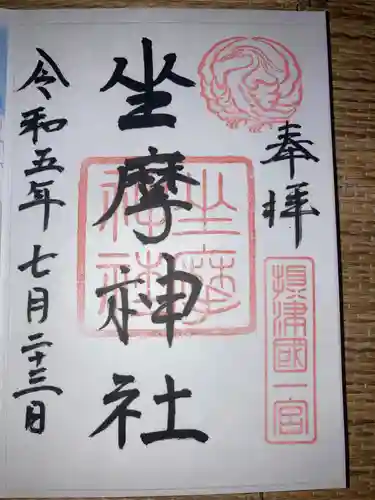 奉拝
摂津國一宮
坐摩神社
坐摩神社
令和五年七月二十三日